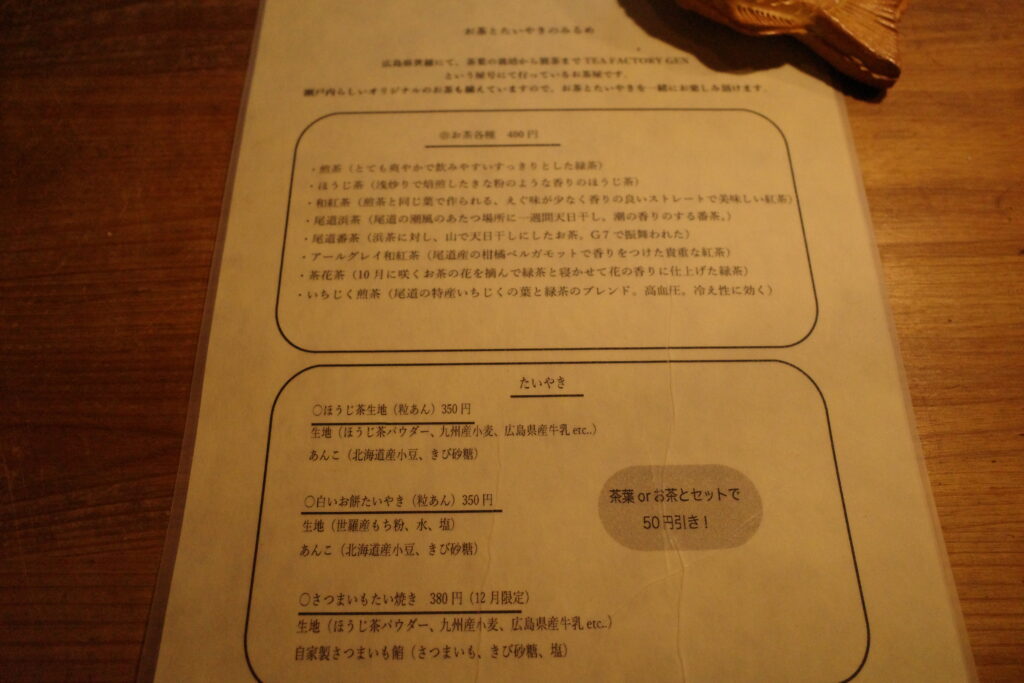 お茶とたいやきのみるめ
広島県世羅にて、茶葉の栽培から製茶まで TEA FACTORY GEN
という屋号にて行っているお茶屋です。
瀬戸内らしいオリジナルのお茶も揃えていますので、お茶とたいやきを一緒にお楽しみ頂けます。
◎お茶各種 400 円
・煎茶（とても爽やかで飲みやすいすっきりとした緑茶）
・ほうじ茶（浅炒りで焙煎したきな粉のような香りのほうじ茶）
・和紅茶（煎茶と同じ葉で作られる、えぐ味が少なく香りの良いストレートで美味しい紅茶）
・尾道浜茶（尾道の潮風のあたつ場所に一週間天日干し、潮の香りのする番茶。）
・尾道番茶（浜茶に対し、山で天日干しにしたお茶。G7 で振舞われた）
・アールグレイ和紅茶（尾道産の柑橘ベルガモットで香りをつけた貴重な紅茶）
・茶花茶（10 月に咲くお茶の花を摘んで緑茶と寝かせて花の香りに仕上げた緑茶）
・いちじく煎茶（尾道の特産いちじくの葉と緑茶のブレンド。高血圧。冷え性に効く）
たいやき
○ほうじ茶生地（粒あん）350 円
生地（ほうじ茶パウダー、九州産小麦、広島県産牛乳 etc..）
あんこ（北海道産小豆、きび砂糖）
○白いお餅たいやき（粒あん）350 円
生地（世羅産もち粉、水、塩）
あんこ（北海道産小豆、きび砂糖）
茶葉 or お茶とセットで
50 円引き！
○さつまいもたい焼き 380 円（12 月限定）
生地（ほうじ茶パウダー、九州産小麦、広島県産牛乳 etc..）
自家製さつまいも餡（さつまいも、きび砂糖、塩）